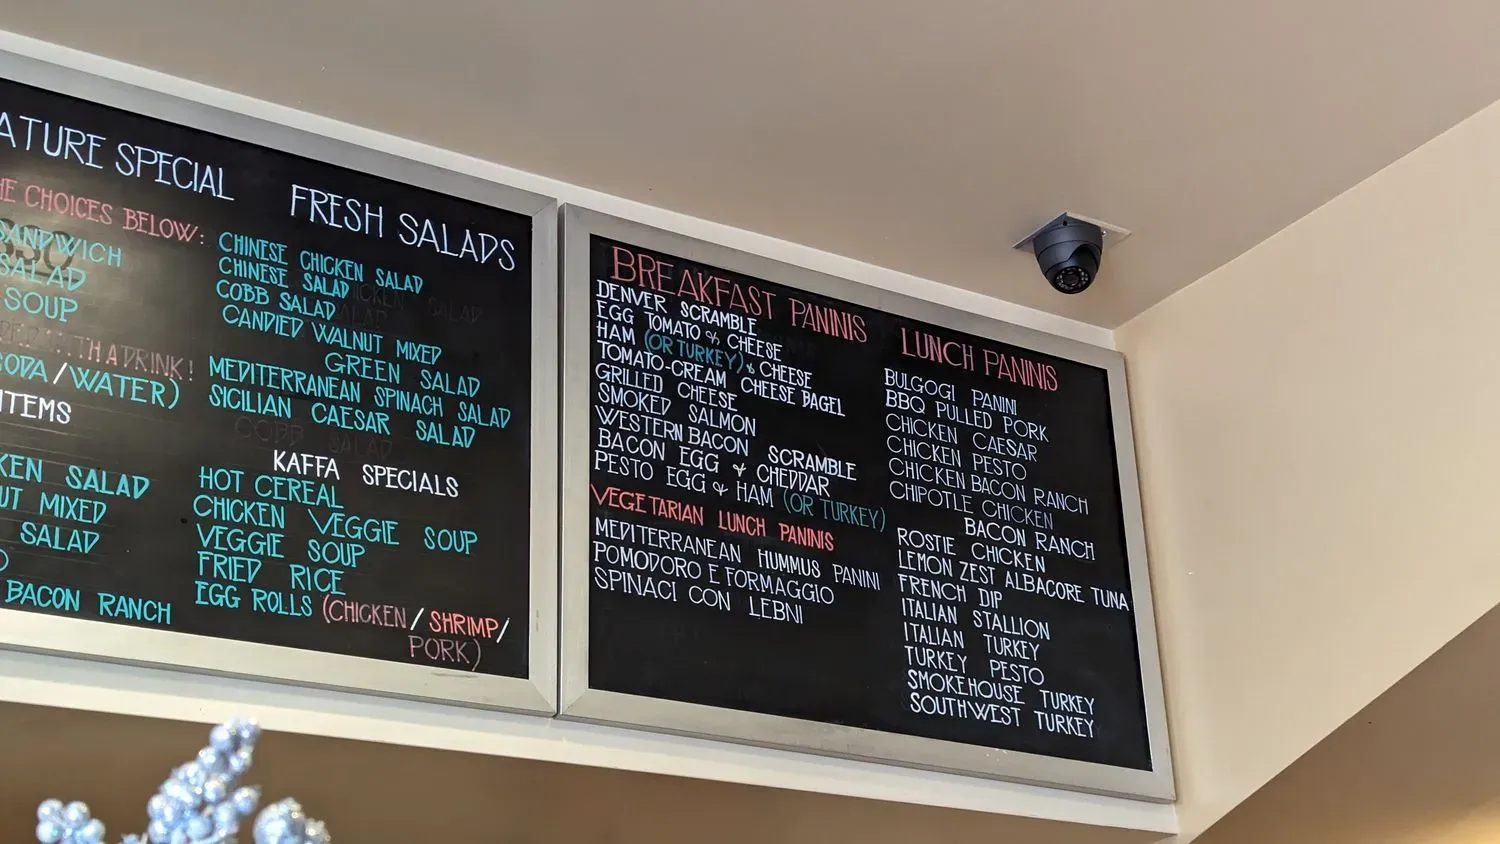 ATURE SPECIAL
HE CHOICES BELOW:
SANDWICH
SALAD
SOUP
A DRINK!
SODA/WATER)
ITEMS
KEN SALAD
UT MIXED
SALAD
BACON RANCH
FRESH SALADS
CHINESE CHICKEN SALAD
CHINESE SALAD
COBB SALAD
CANDIED WALNUT MIXED
GREEN SALAD
MEDITERRANEAN SPINACH SALAD
SICILIAN CAESAR SALAD
COBB SALAD
KAFFA SPECIALS
HOT CEREAL
CHICKEN VEGGIE SOUP
VEGGIE SOUP
FRIED RICE
EGG ROLLS (CHICKEN/SHRIMP/
PORK)
BREAKFAST PANINIS
DENVER SCRAMBLE
EGG TOMATO & CHEESE
HAM (OR TURKEY) & CHEESE
TOMATO-CREAM CHEESE BAGEL
GRILLED CHEESE
SMOKED SALMON
WESTERN BACON SCRAMBLE
BACON EGG & CHEDDAR
PESTO EGG & HAM (OR TURKEY)
VEGETARIAN LUNCH PANINIS
MEDITERRANEAN HUMMUS PANINI
POMODORO E FORMAGGIO
SPINACI CON LEBNI
LUNCH PANINIS
BULGOGI PANINI
BBQ PULLED PORK
CHICKEN CAESAR
CHICKEN PESTO
CHICKEN BACON RANCH
CHIPOTLE CHICKEN
BACON RANCH
ROSTIE CHICKEN
LEMON ZEST ALBACORE TUNA
FRENCH DIP
ITALIAN STALLION
ITALIAN TURKEY
TURKEY PESTO
SMOKEHOUSE TURKEY
SOUTHWEST TURKEY